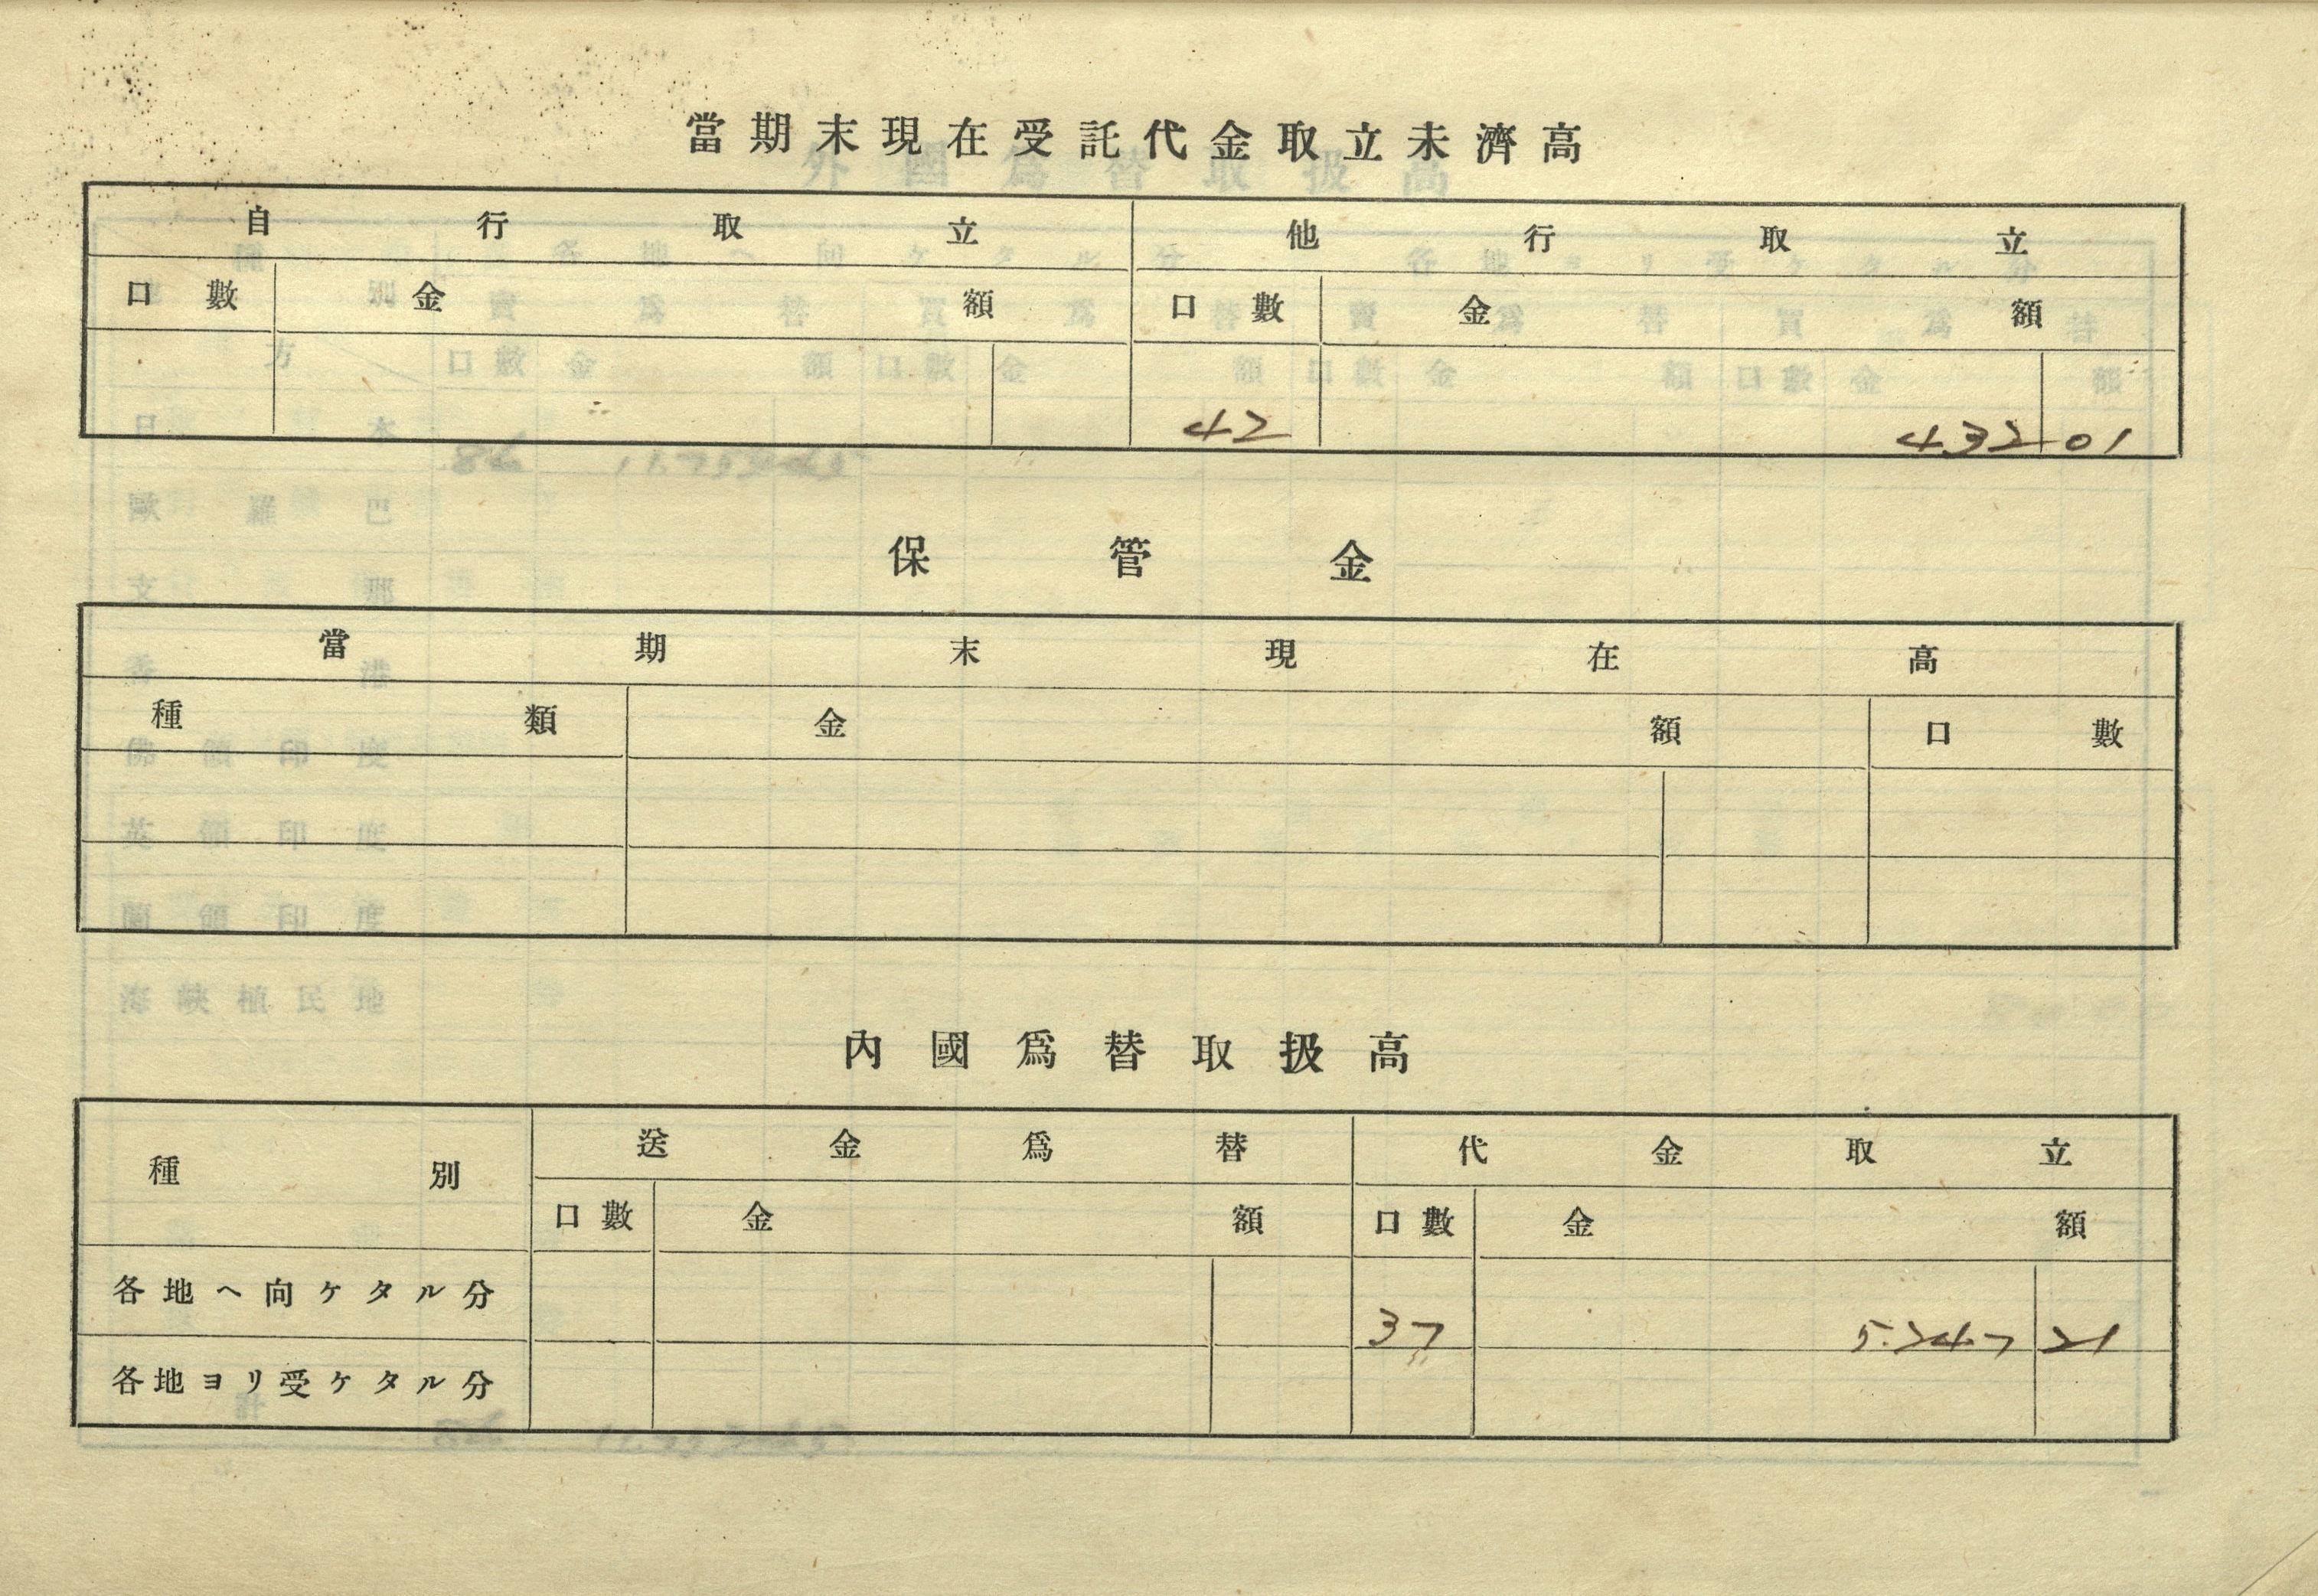 當期末現在受託代金取立未濟高
自行取立 他行取立
口數 金額 口數 金額
42 432 01
保管金
當期末現在高
種類 金額 口數
內國爲替取扱高
種別 送金爲替 代金取立
口數 金額 口數 金額
各地ヘ向ケタル分 37 5.247 21
各地ヨリ受ケタル分